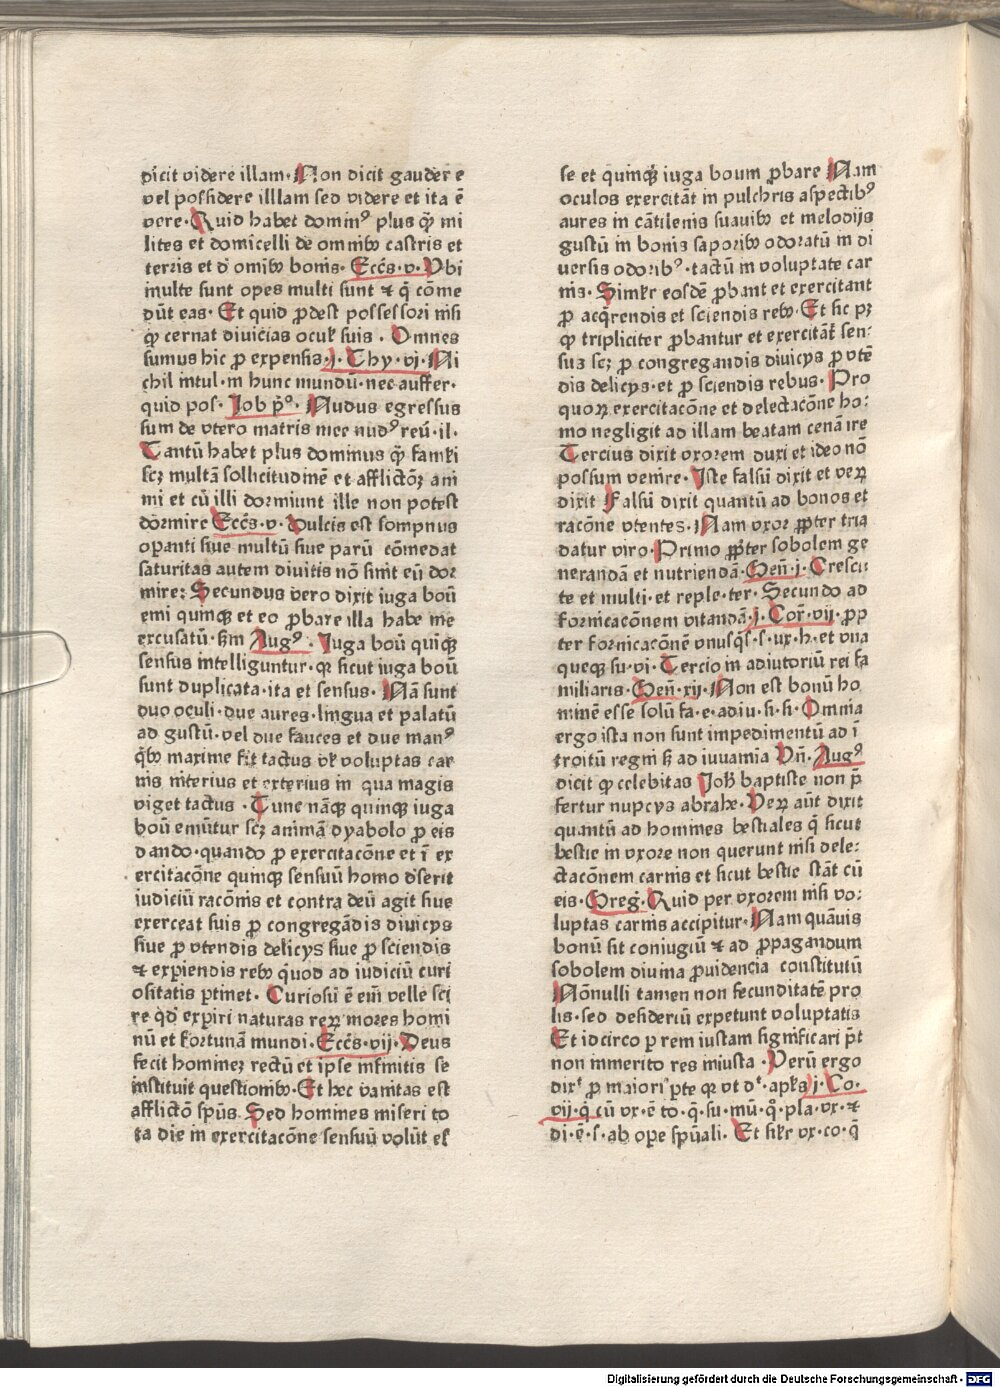 dicit videre illam· Non dicit gaudere
vel possidere illlam sed videre et ita ē
vere· Quid habet dominꝰ plus q̄ꝫ mi
lites et domicelli de omnibꝰ castris et
terris et d̄ omībꝰ bonis· Eccēs·v· Vbi
multe sunt opes multi sunt ⁊ q̄ cōme
dūt eas· Et quid ꝓdest possessori nisi
ꝙ cernat diuicias oculꝭ suis · Omnes
sumus hic ꝓ expensis·j·Thy·vj·Ni
chil intul·in hunc mundū·nec auffer·
quid pos· Job p̄ᵒ· Nudus egressus
sum de vtero matris mee nudꝰ reū·il·
Tantū habet plus dominus q̄ꝫ famꝉi
scꝫ multā sollicitudinē et afflictōꝫ ani
mi et cū illi dormiunt ille non potest
dormire Eccēs·v· Dulcis est sompnus
oꝑanti siue multū siue parū cōmedat
saturitas autem diuitis nō sinit eū dor
mire: Secundus vero dixit iuga boū
emi quinqꝫ et eo ꝓbare illa habe me
excusatū·ẜm Augꝰ · Iuga boū quīqꝫ
sensus intelliguntur·qꝛ sicut iuga boū
sunt duplicata·ita et sensus· Nā sunt
duo oculi·due aures·lingua et palatū
ad gustū·vel due fauces et due manꝰ
q̄bꝰ maxime fit tactus vꝉ voluptas car
nis interius et exterius in qua magis
viget tactus · Tunc nāqꝫ quinqꝫ iuga
boū emūtur scꝫ animā dyabolo ꝓ eis
dando·quando ꝓ exercitacōne et ī ex
ercitacōne quinqꝫ sensuū homo d̄serit
iudiciū racōnis et contra deū agit siue
exerceat suis ꝓ congregādis diuicijs
siue ꝓ vtendis delicijs siue ꝓ sciendis
⁊ exꝑiendis rebꝰ quod ad iudiciū curi
ositatis ꝑtinet· Curiosū ē eni velle sci
re qd̄ exꝑiri naturas reꝝ mores homi
nū et fortunā mundi·Eccēs·vij·Deus
fecit hominez rectū et ipse infinitis se
instituit questionibꝰ· Et hec vanitas est
afflictō spūs· Sed homines miseri to
ta die in exercitacōne sensuū volūt es
se et quinqꝫ iuga boum ꝓbare Nam
oculos exercitāt in pulchris aspectibꝰ
aures in cātilenis suauibꝰ et melodijs
gustū in bonis saporibꝰ odoratū in di
uersis odoribꝰ·tactū in voluptate car
nis· Similꝝ eosdē ꝓbant et exercitant
ꝓ acq̄rendis et sciendis rebꝰ· Et sic pꝫ
ꝙ tripliciter ꝓbantur et exercitāt̄ sen-
sus scꝫ ꝓ congregandis diuicijs ꝓ vtē
dis delicijs·et ꝓ sciendis rebus· Pro
quoꝝ exercitacōne et delectacōne ho-
mo negligit ad illam beatam cenā ire
Tercius dixit vxorem duxi et ideo nō
possum venire· Iste falsū dixit et veꝝ
dixit Falsū dixit quantū ad bonos et
racōne vtentes· Nam vxor ꝓpter tria
datur viro· Primo ꝓpter sobolem ge
nerandā et nutriendā·Gen̄·j·Cresci
te et multi·et reple·ter· Secundo ad
fornicacōnem vitandā·j·Cor̄·vij·ꝓp
ter fornicacōnē vnusq̄s·s·ux·h·et vna
queqꝫ su·vi· Tercio in adiutoriū rei fa
miliaris·Gen̄·xij·Non est bonū ho
minē esse solū fa·e·adiu·s·s· Omnia
ergo ista non sunt impedimentū ad ī
troitū regni sꝫ ad iuuamīa Vn̄·Augꝰ
dicit ꝙ celebitas Joħ baptiste non p̄
fertur nupcijs abrahe· Veꝝ aūt dixit
quantū ad homines bestiales q̄ sicut
bestie in vxore non querunt nisi dele-
ctacōnem carnis et sicut bestie stāt cū
eis·Greg̃· Quid per vxorem nisi vo-
luptas carnis accipitur· Nam quāuis
bonū sit coniugiū ⁊ ad ꝓpagandum
sobolem diuina ꝓuidencia constitutū
Nōnulli tamen non fecunditatē pro
lis·sed desideriū expetunt voluptatis
Et idcirco ꝑ rem iustam significari p̄t
non inmerito res iniusta · Verū ergo
dixͭ ꝓ maiori ꝑte qꝛ vt dͭ·apꝉs j·Co·
vij·q̄ cū vx·ē to·q̄·su·mū·qͦ·pla·vx·⁊
di·ē·s·ab oꝑe spūali· Et silꝝ vx·co·q̄
Digitalisierung gefördert durch die Deutsche Forschungsgemeinschaft · DFG